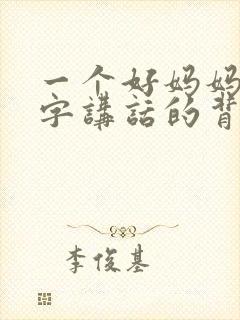 一个好妈妈
字講話的背
李俊基